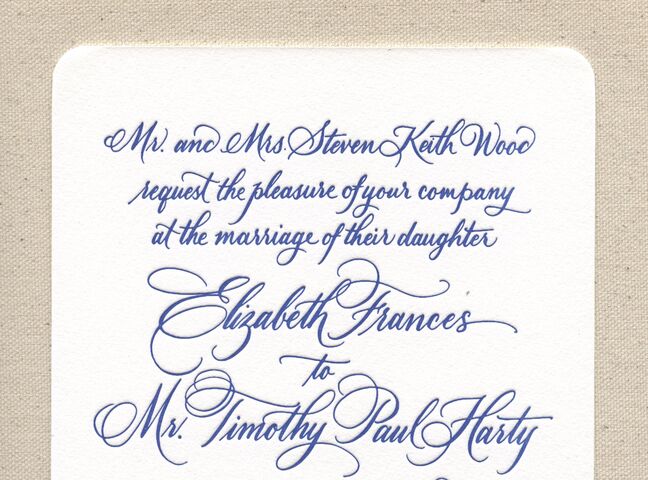 Mr. and Mrs. Steven Keith Wood
request the pleasure of your company
at the marriage of their daughter
Elizabeth Frances
to
Mr. Timothy Paul Harty